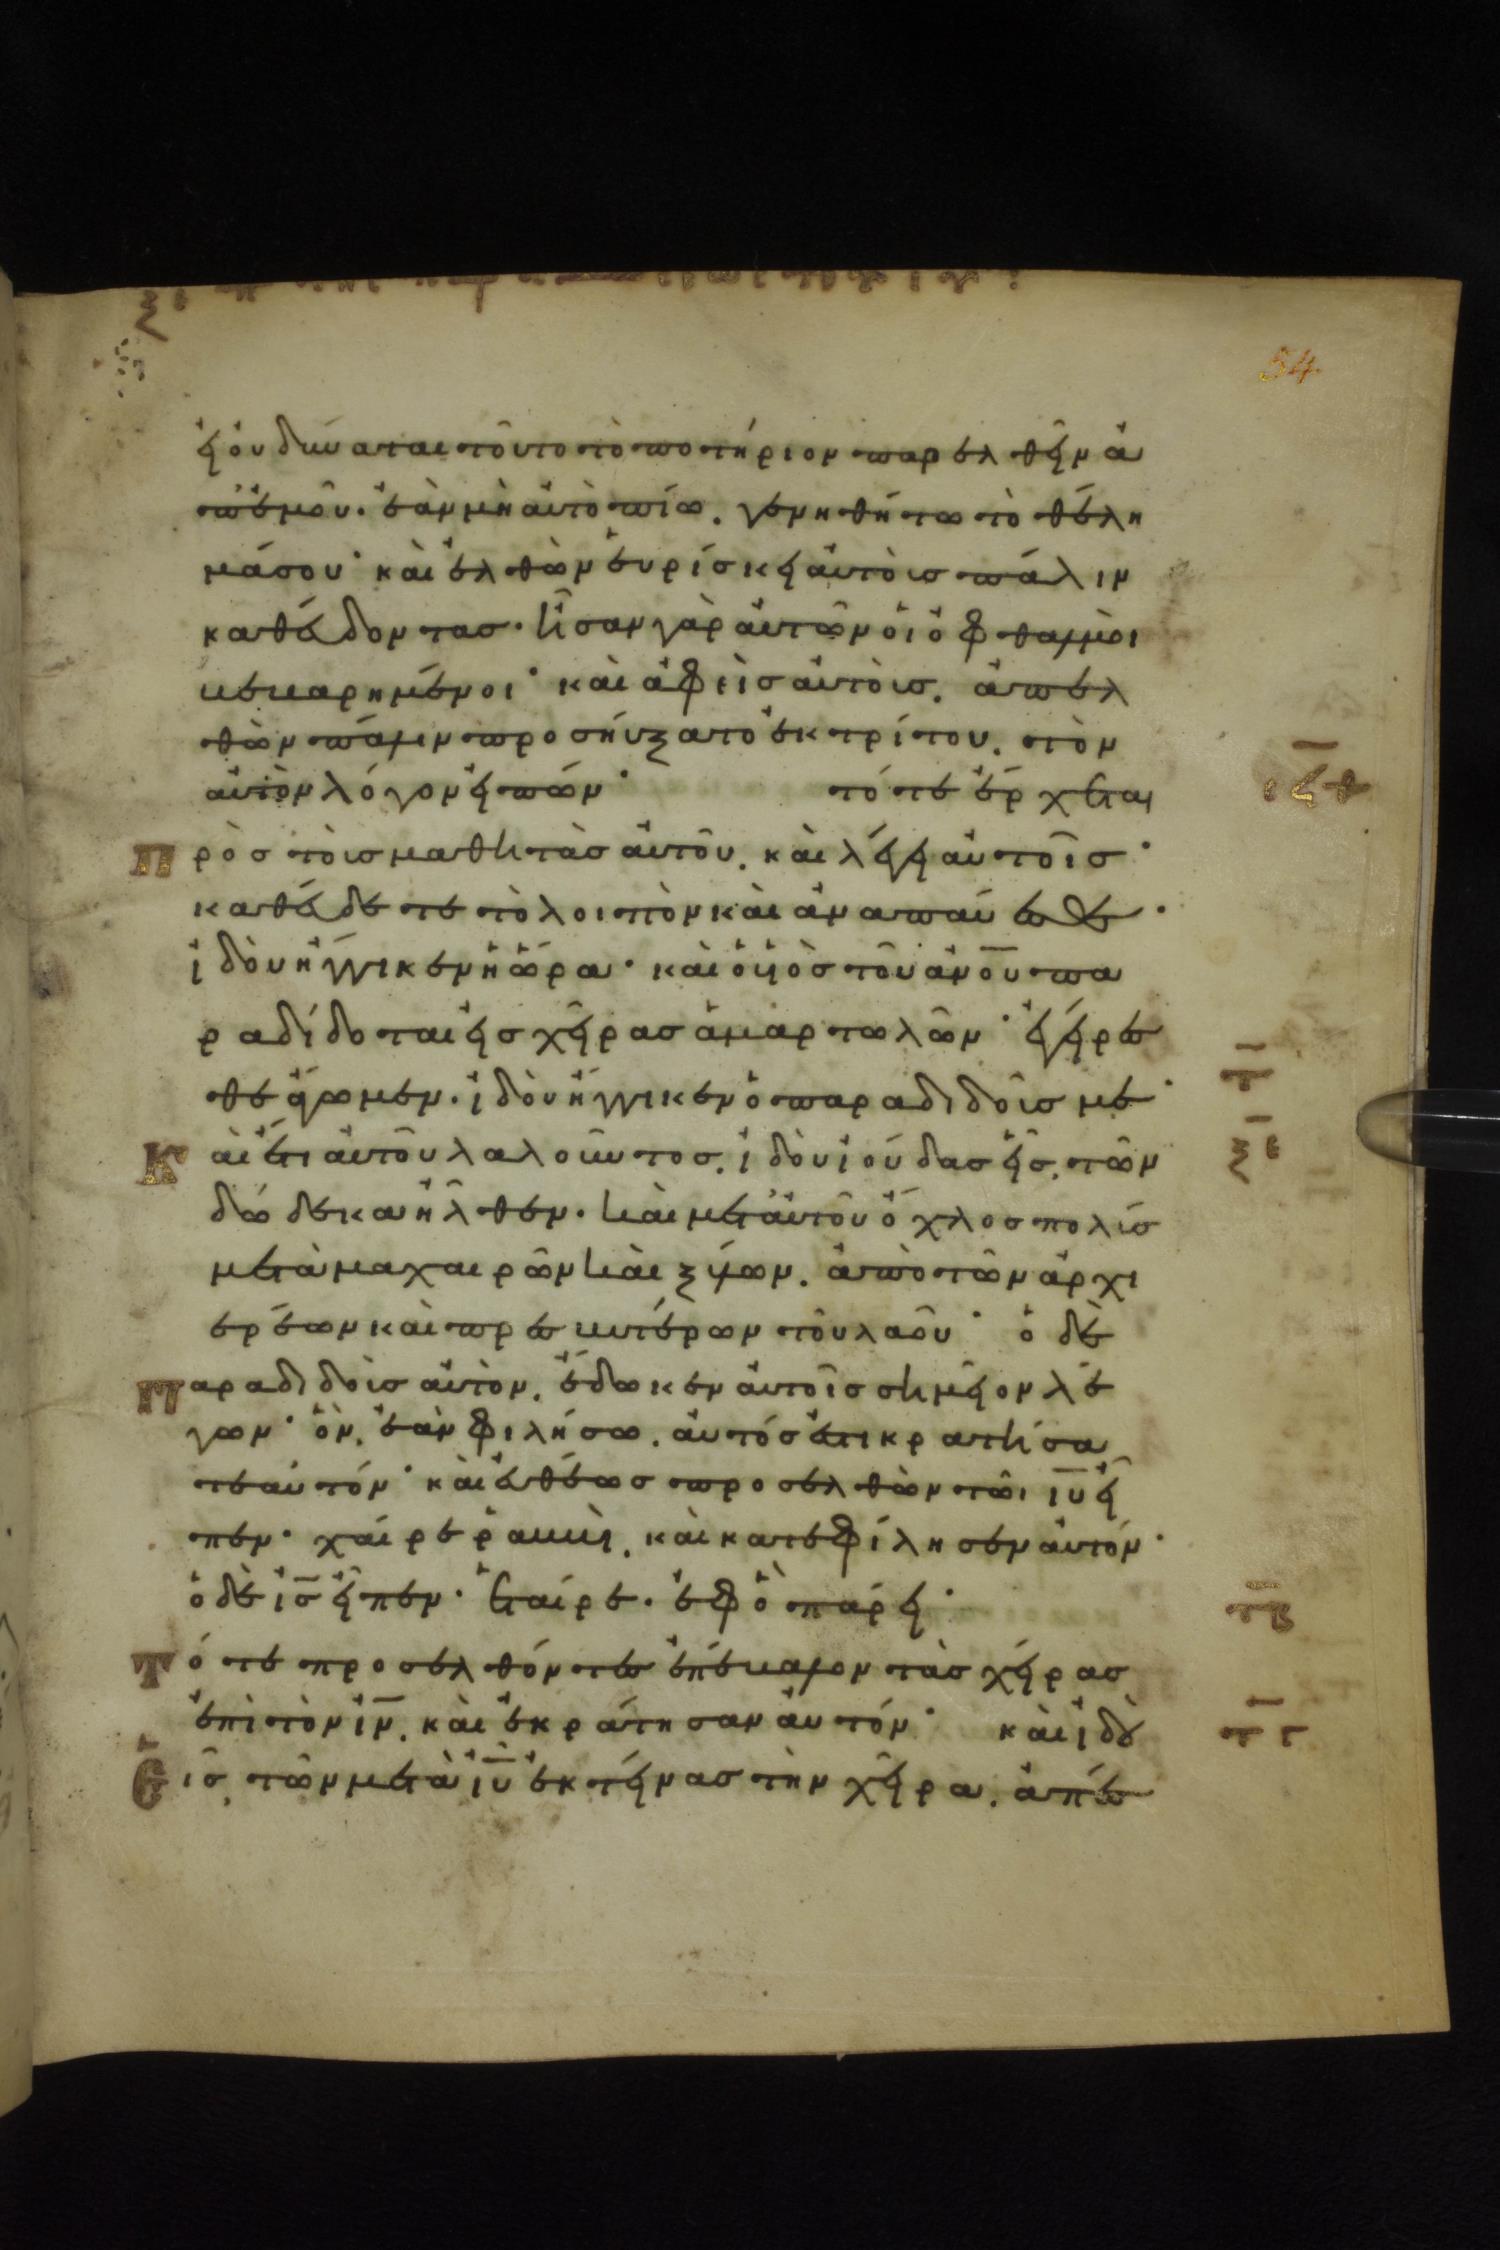 54
εἰ οὐ δύναται τοῦτο τὸ ποτήριον παρελθεῖν ἀ
π' ἐμοῦ· ἐὰν μὴ αὐτὸ πίω. γενηθήτω τὸ θέλη
μά σου· καὶ ἐλθὼν εὑρίσκει αὐτοὺς πάλιν
καθεύδοντας· ἦσαν γὰρ αὐτῶν οἱ ὀφθαλμοὶ
βεβαρημένοι· καὶ ἀφεὶς αὐτοὺς. ἀπελ
θὼν πάλιν προσηύξατο ἐκ τρίτου. τὸν
αὐτὸν λόγον εἰπών· τότε ἔρχεται
πρὸς τοὺς μαθητὰς αὐτοῦ. καὶ λέγει αὐτοῖς·
καθεύδετε τὸ λοιπὸν καὶ ἀναπαύεσθε·
ἰδοὺ ἤγγικεν ἡ ὥρα· καὶ ὁ υἱὸς τοῦ ἀνου πα
ραδίδοται εἰς χεῖρας ἁμαρτωλῶν· ἐγείρεσ
θε ἄγωμεν· ἰδοὺ ἤγγικεν ὁ παραδιδούς με·
Καὶ ἔτι αὐτοῦ λαλοῦντος. ἰδοὺ ἰούδας εἷς. τῶν
δώδεκα ἦλθεν· καὶ μετ' αὐτοῦ ὄχλος πολύς
μετὰ μαχαιρῶν καὶ ξύλων. ἀπὸ τῶν ἀρχι
ερέων καὶ πρεσβυτέρων τοῦ λαοῦ· ὁ δὲ
παραδιδοὺς αὐτὸν. ἔδωκεν αὐτοῖς σημεῖον λέ
γων· ὃν. ἐὰν φιλήσω. αὐτός ἐστι κρατήσα
τε αὐτόν· καὶ εὐθέως προσελθὼν τῶι ιυ εἶ
πεν· χαίρε ῥαββὶ. καὶ κατεφίλησεν αὐτόν·
ὁ δὲ ις εἶπεν· ἑταίρε· ἐφ' ὃ πάρει·
τότε προσελθόντες ἐπέβαλον τὰς χεῖρας
ἐπὶ τὸν ιν. καὶ ἐκράτησαν αὐτόν· καὶ ἰδοὺ
εἷς. τῶν μετὰ ιυ ἐκτείνας τὴν χεῖρα. ἀπέσ
τ
τβ
τγ